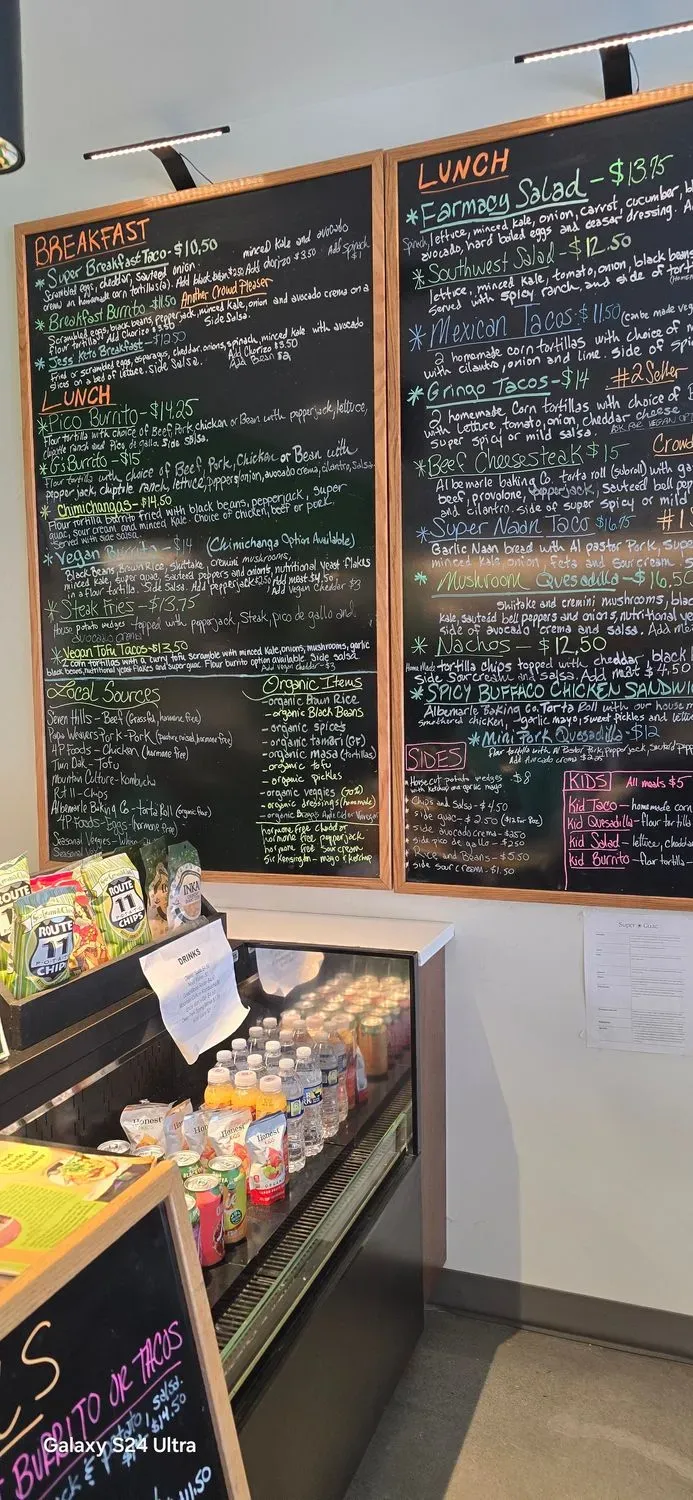 BREAKFAST
* Super Breakfast Taco - $10.50
Scrambled eggs, cheddar, sauteed onion, minced kale and avocado
crema on homemade corn tortillas(2). Add black bean $2 Add chorizo $3.50 Add Spinach $1
* Breakfast Burrito - $11.50 Another Crowd Pleaser
Scrambled eggs, black beans, pepperjack, minced kale, onion and avocado crema on a
flour tortilla. Add Chorizo $3.50 Side Salsa.
* Jess' Keto Breakfast - $12.50
fried or scrambled eggs, asparagus, cheddar, onions, spinach, minced kale with avocado
slices on a bed of lettuce. Side Salsa. Add Chorizo $3.50
Add Bean $2
LUNCH
* Pico Burrito - $14.25
flour tortilla with choice of Beef, Pork, chicken or Bean with pepperjack, lettuce,
chipotle ranch and Pico de gallo. Side Salsa.
* G's Burrito - $15
flour tortilla with choice of Beef, Pork, Chicken or Bean with
pepper jack, chiptole ranch, lettuce, peppers/onion, avocado crema, cilantro, salsa
* Chimichangas - $14.50
Flour tortilla burrito fried with black beans, pepperjack, super
guac, sour cream and minced Kale. Choice of chicken, beef or pork.
Served with side salsa
* Vegan Burrito - $14 (Chimichanga Option Available)
Black Beans, Brown Rice, Shiitake, cremini mushrooms,
minced kale, super guac, sauteed peppers and onions, nutritional yeast flakes
in a flour tortilla. Side Salsa. Add pepperjack $2.50 Add meat $4.50
Add Vegan Cheddar $3
* Steak Fries - $13.75
House potato wedges topped with pepperjack, Steak, pico de gallo and
avocado crema
* Vegan Tofu Tacos - $13.50
2 corn tortillas with a curry tofu scramble with minced Kale, onions, mushrooms, garlic
black beans, nutritional yeast flakes and super guac. Flour burrito option available. Side salsa.
Add Vegan cheddar $3
Local Sources
Seven Hills - Beef (Grassfed, hormone free)
Papa Weavers Pork - Pork (pasture raised, hormone free)
4P Foods - Chicken (hormone free)
Twin Oak - Tofu
Mountain Culture - kombucha
Rt 11 - Chips
Albemarle Baking Co - torta Roll (organic flour)
4P Foods - Eggs - (hormone free)
Seasonal Veggies -
Seasonal
Organic Items
- organic Brown Rice
- organic Black Beans
- organic spices
- organic tamari (GF)
- organic masa (tortillas)
- organic tofu
- organic pickles
- organic veggies (90%)
- organic dressings (homemade)
- organic Braggs Apple Cider Vinegar
hormone free cheddar
hormone free pepperjack
hormone free sour cream
Sir Kensington - mayo & ketchup
LUNCH
* Farmacy Salad - $13.75
Spinach, lettuce, minced kale, onion, carrot, cucumber, bl
avocado, hard boiled eggs and ceasar dressing. A
* Southwest Salad - $12.50
lettuce, minced Kale, tomato, onion, black beans
served with spicy ranch, and side of tort
* Mexican Tacos - $11.50 (can be made ve
2 homemade corn tortillas with choice of
with cilantro, onion and lime. side of spi
* Gringo Tacos - $14 #2 Seller
2 homemade Corn tortillas with choice of
with Lettuce, tomato, onion, cheddar cheese.
super spicy or mild salsa. ASK FOR VEGAN OP
* Beef Cheesesteak $15 Crow
Albemarle baking Co. torta roll (subroll) with ga
beef, provolone, pepperjack, sauteed bell pep
and cilantro. side of super spicy or mild
* Super Naan Taco $16.75 #1
Garlic Naan bread with Al pastor Pork, Supe
minced kale, onion, Feta and Sour cream. S
* Mushroom Quesadilla - $16.50
shiitake and cremini mushrooms, blac
kale, sauteed bell peppers and onions, nutritional ye
side of avocado crema and salsa. Add m
* Nachos - $12.50
Home Made tortilla chips topped with cheddar, black b
side Sour cream and salsa. Add meat $4.5
* SPICY BUFFALO CHICKEN SANDWI
Albemarle Baking Co. Torta Roll with our house m
smothered chicken, garlic mayo, sweet pickles and lettu
* Mini Pork Quesadilla - $12
flour tortilla with Al Pastor Pork, pepper jack, sauteed pepp
Add Avocado crema $2.50
SIDES
- House cut potato wedges - $8
with ketchup and garlic mayo
- Chips and Salsa - $4.50
- side guac - $2.50
- side avocado crema - $2.50
- side pico de gallo - $2.50
- Rice and Beans - $5.50
- side sour crema - $1.50
KIDS All meals $5
Kid Taco - homemade corn
Kid Quesadilla - flour tortilla
Kid Salad - lettuce, chedda
kid Burrito - flour tortilla -
Super Guac
ROUTE
11
CHIPS
ROUTE
11
POTATO
CHIPS
INKA
DRINKS
Honest
Honest
Honest
KIDS
S
BURRITO OR TACOS
salsa.
$14.50
11.50
Galaxy S24 Ultra